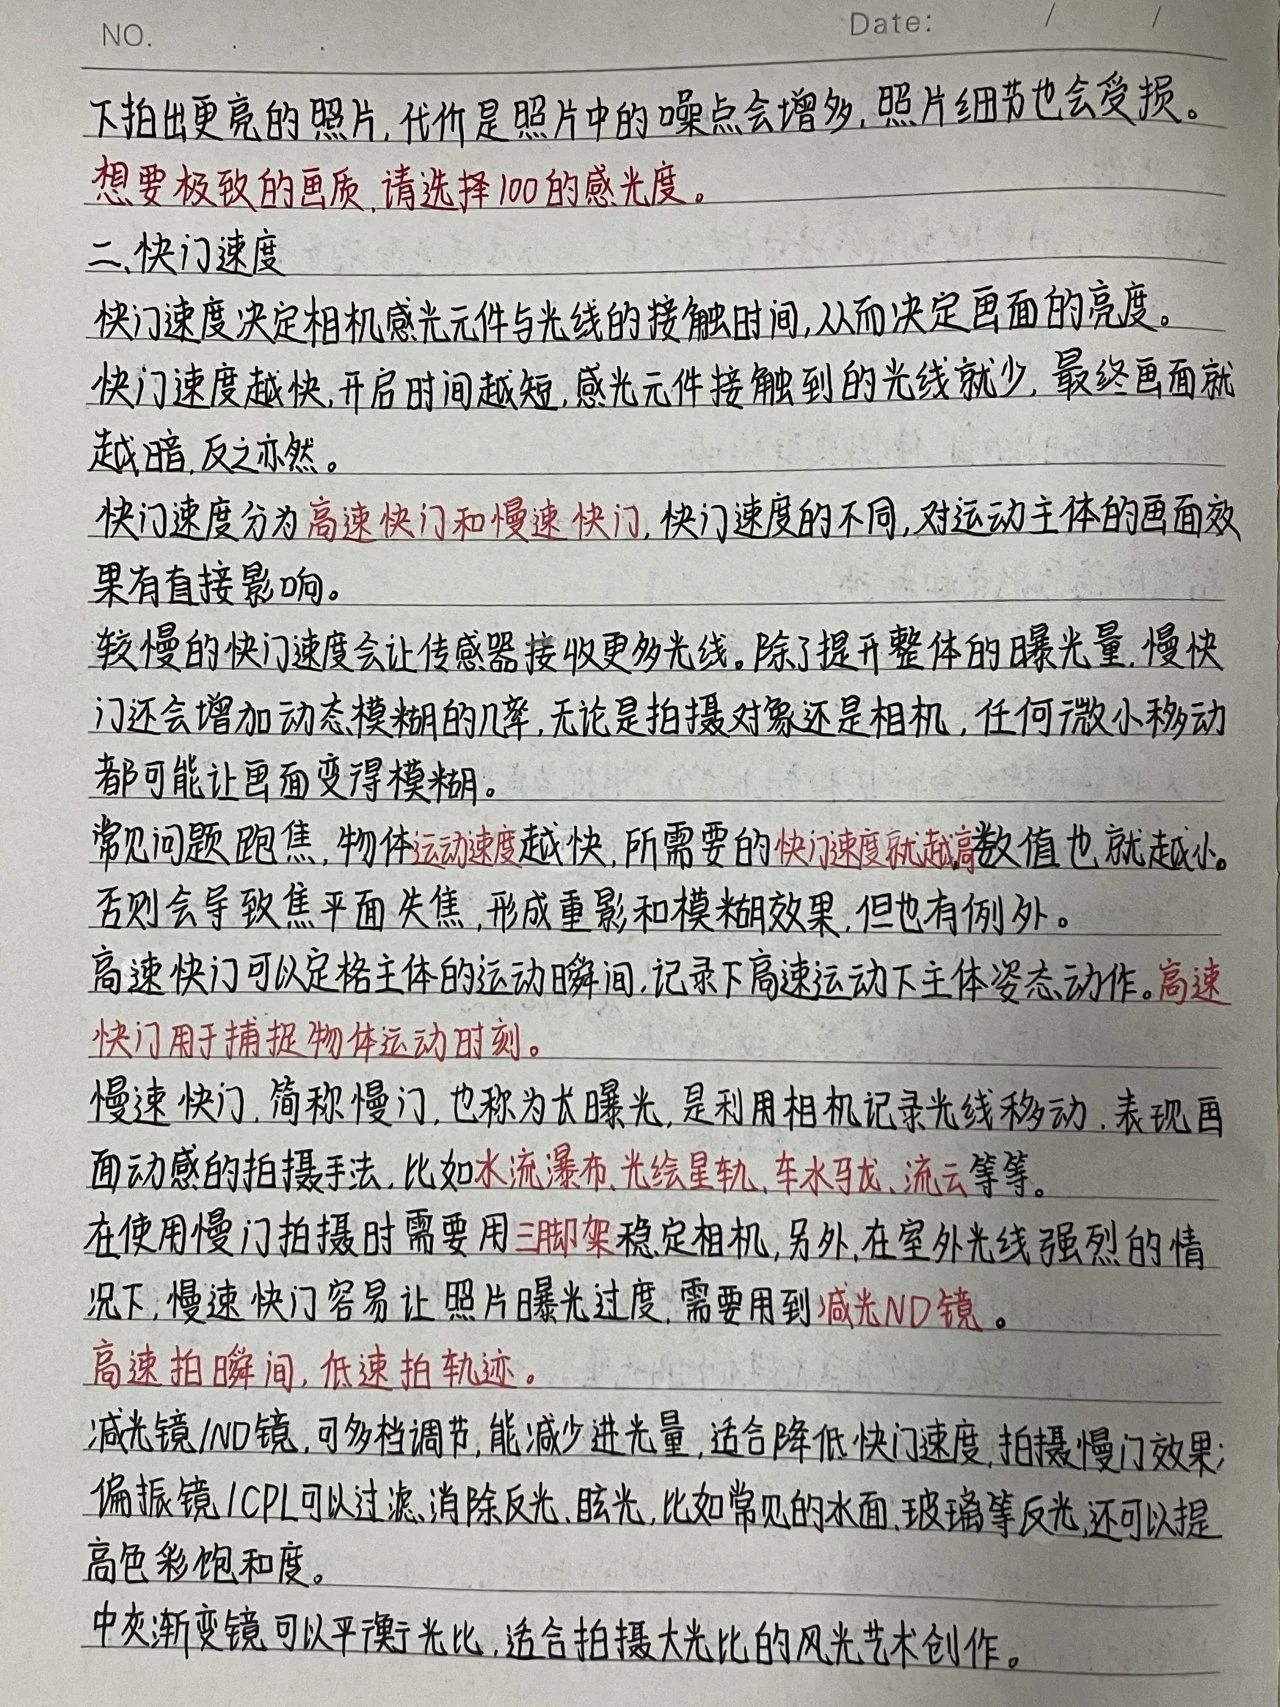 NO.
Date: / /
下拍出更亮的照片,代价是照片中的噪点会增多,照片细节也会受损。
想要极致的画质,请选择100的感光度。
二、快门速度
快门速度决定相机感光元件与光线的接触时间,从而决定画面的亮度。
快门速度越快,开启时间越短,感光元件接触到的光线就少,最终画面就
越暗,反之亦然。
快门速度分为高速快门和慢速快门,快门速度的不同,对运动主体的画面效
果有直接影响。
较慢的快门速度会让传感器接收更多光线。除了提升整体的曝光量,慢快
门还会增加动态模糊的几率,无论是拍摄对象还是相机,任何微小移动
都可能让画面变得模糊。
常见问题跑焦,物体运动速度越快,所需要的快门速度就越高,数值也就越小。
否则会导致焦平面失焦,形成重影和模糊效果,但也有例外。
高速快门可以定格主体的运动瞬间,记录下高速运动下主体姿态动作。高速
快门用于捕捉物体运动时刻。
慢速快门,简称慢门,也称为长曝光,是利用相机记录光线移动,表现画
面动感的拍摄手法,比如水流瀑布、光绘星轨、车水马龙、流云等等。
在使用慢门拍摄时需要用三脚架稳定相机,另外,在室外光线强烈的情
况下,慢速快门容易让照片曝光过度,需要用到减光ND镜。
高速拍瞬间,低速拍轨迹。
减光镜/ND镜,可多档调节,能减少进光量,适合降低快门速度,拍摄慢门效果;
偏振镜/CPL可以过滤、消除反光、眩光,比如常见的水面、玻璃等反光,还可以提
高色彩饱和度。
中灰渐变镜可以平衡光比,适合拍摄大光比的风光艺术创作。